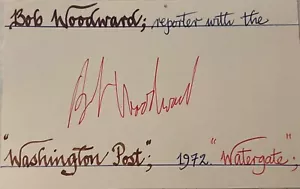 Bob Woodward; reporter with the
Bob Woodward
"Washington Post"; 1972. "Watergate";